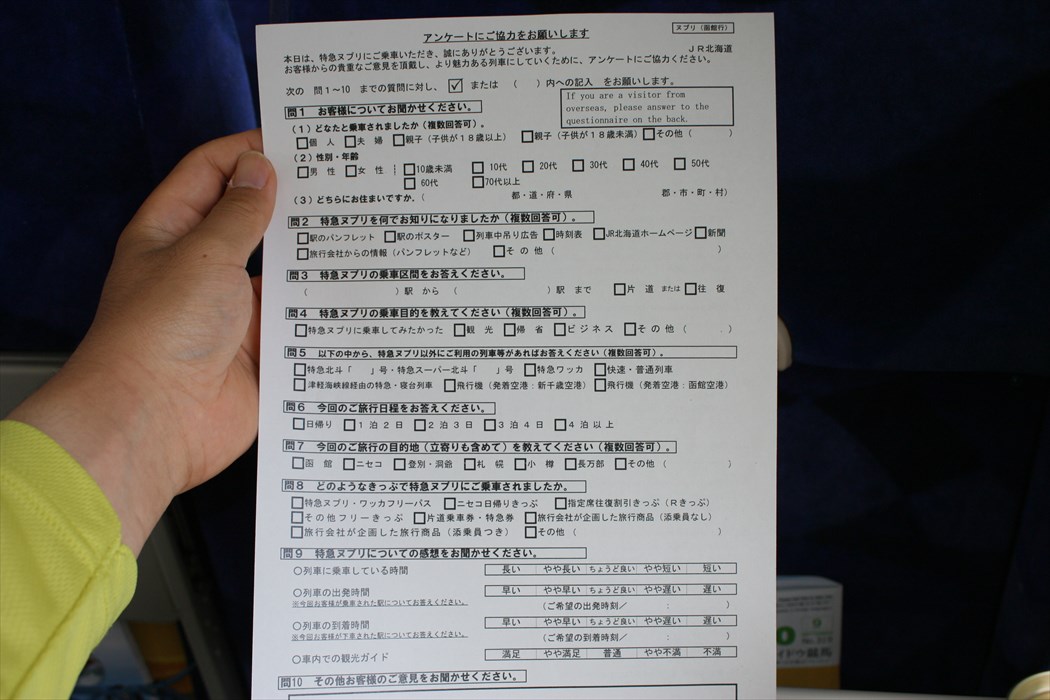 アンケートにご協力をお願いします
ヌプリ（函館行）
本日は、特急ヌプリにご乗車いただき、誠にありがとうございます。
ＪＲ北海道
お客様からの貴重なご意見を頂戴し、より魅力ある列車にしていくために、アンケートにご協力ください。
次の 問１～10 までの質問に対し、☑ または （ ）内への記入 をお願いします。
If you are a visitor from
overseas, please answer to the
questionnaire on the back.
問１ お客様についてお聞かせください。
（１）どなたと乗車されましたか（複数回答可）。
□個 人 □夫 婦 □親子（子供が１８歳以上） □親子（子供が１８歳未満） □その他（ ）
（２）性別・年齢
□男 性 □女 性 □10歳未満 □10代 □20代 □30代 □40代 □50代
□60代 □70代以上
（３）どちらにお住まいですか。（ 都・道・府・県 郡・市・町・村）
問２ 特急ヌプリを何でお知りになりましたか（複数回答可）。
□駅のパンフレット □駅のポスター □列車中吊り広告 □時刻表 □JR北海道ホームページ □新聞
□旅行会社からの情報（パンフレットなど） □その他（ ）
問３ 特急ヌプリの乗車区間をお答えください。
（ ）駅 から （ ）駅 まで □片 道 または □往 復
問４ 特急ヌプリの乗車目的を教えてください（複数回答可）。
□特急ヌプリに乗車してみたかった □観 光 □帰 省 □ビジネス □その他（ ）
問５ 以下の中から、特急ヌプリ以外にご利用の列車等があればお答えください（複数回答可）。
□特急北斗「 」号・特急スーパー北斗「 」号 □特急ワッカ □快速・普通列車
□津軽海峡線経由の特急・寝台列車 □飛行機（発着空港：新千歳空港） □飛行機（発着空港：函館空港）
問６ 今回のご旅行日程をお答えください。
□日帰り □１泊２日 □２泊３日 □３泊４日 □４泊以上
問７ 今回のご旅行の目的地（立寄りも含めて）を教えてください（複数回答可）。
□函 館 □ニセコ □登別・洞爺 □札 幌 □小 樽 □長万部 □その他（ ）
問８ どのようなきっぷで特急ヌプリにご乗車されましたか。
□特急ヌプリ・ワッカフリーパス □ニセコ日帰りきっぷ □指定席往復割引きっぷ（Ｒきっぷ）
□その他フリーきっぷ □片道乗車券・特急券 □旅行会社が企画した旅行商品（添乗員なし）
□旅行会社が企画した旅行商品（添乗員つき） □その他（ ）
問９ 特急ヌプリについての感想をお聞かせください。
○列車に乗車している時間 長い やや長い ちょうど良い やや短い 短い
○列車の出発時間 早い やや早い ちょうど良い やや遅い 遅い
※今回お客様が乗車された駅についてお答えください。 （ご希望の出発時刻／ ： ）
○列車の到着時間 早い やや早い ちょうど良い やや遅い 遅い
※今回お客様が下車された駅についてお答えください。 （ご希望の到着時刻／ ： ）
○車内での観光ガイド 満足 やや満足 普通 やや不満 不満
問10 その他お客様のご意見をお聞かせください。
9